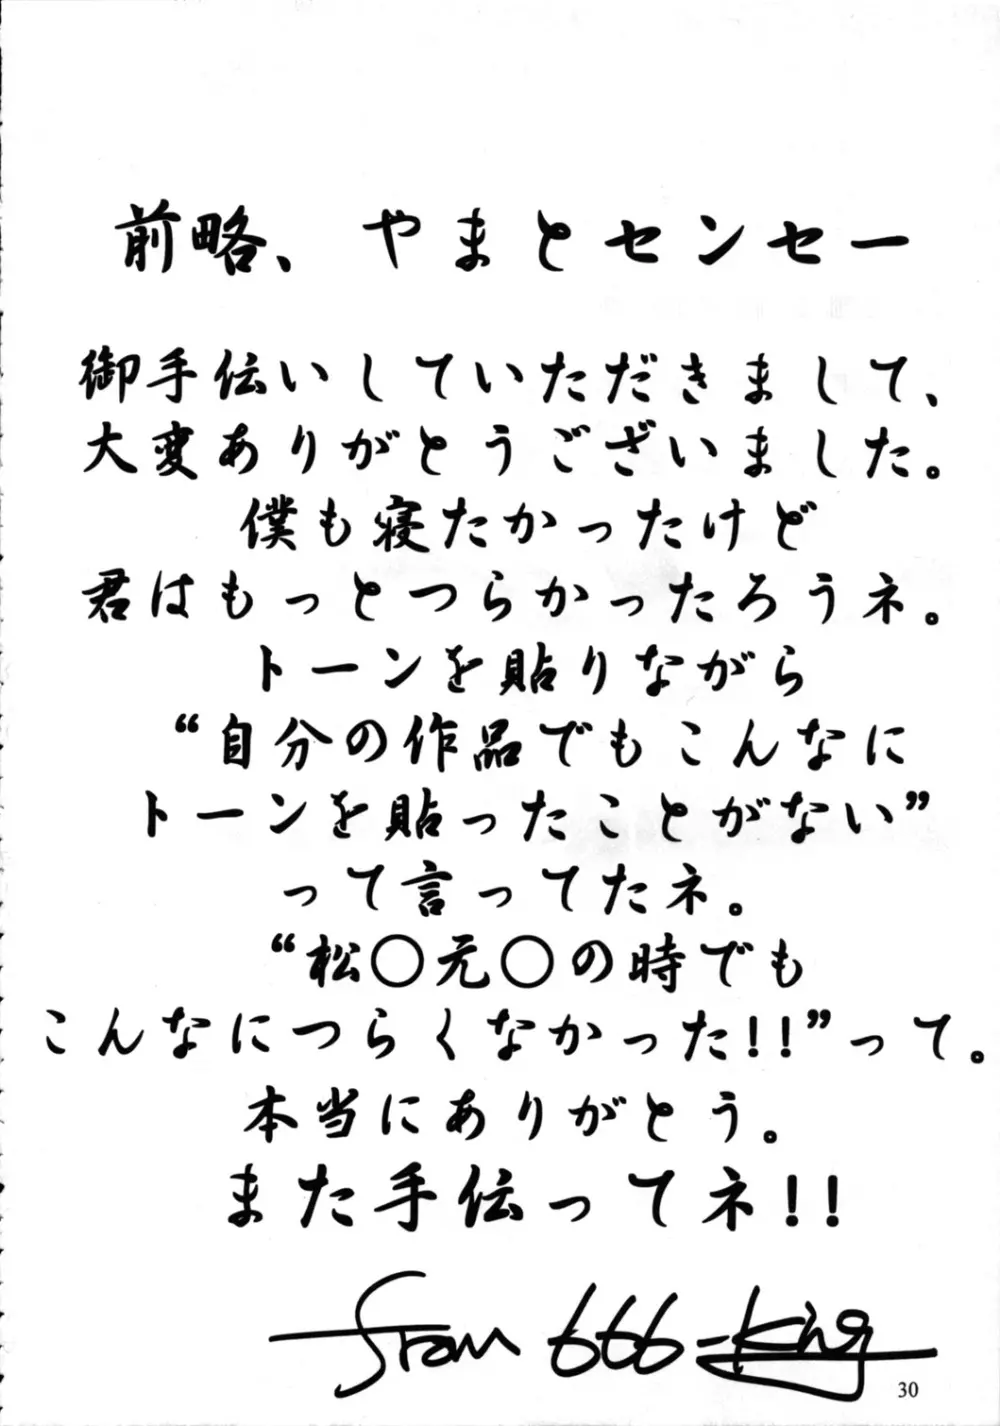 前略、やまとセンセー
御手伝いしていただきまして、
大変ありがとうございました。
僕も寝たかったけど
君はもっとつらかったろうネ。
トーンを貼りながら
“自分の作品でもこんなに
トーンを貼ったことがない”
って言ってたネ。
“松○元○の時でも
こんなにつらくなかった!!”って。
本当にありがとう。
また手伝ってネ!!
from 666-King
30